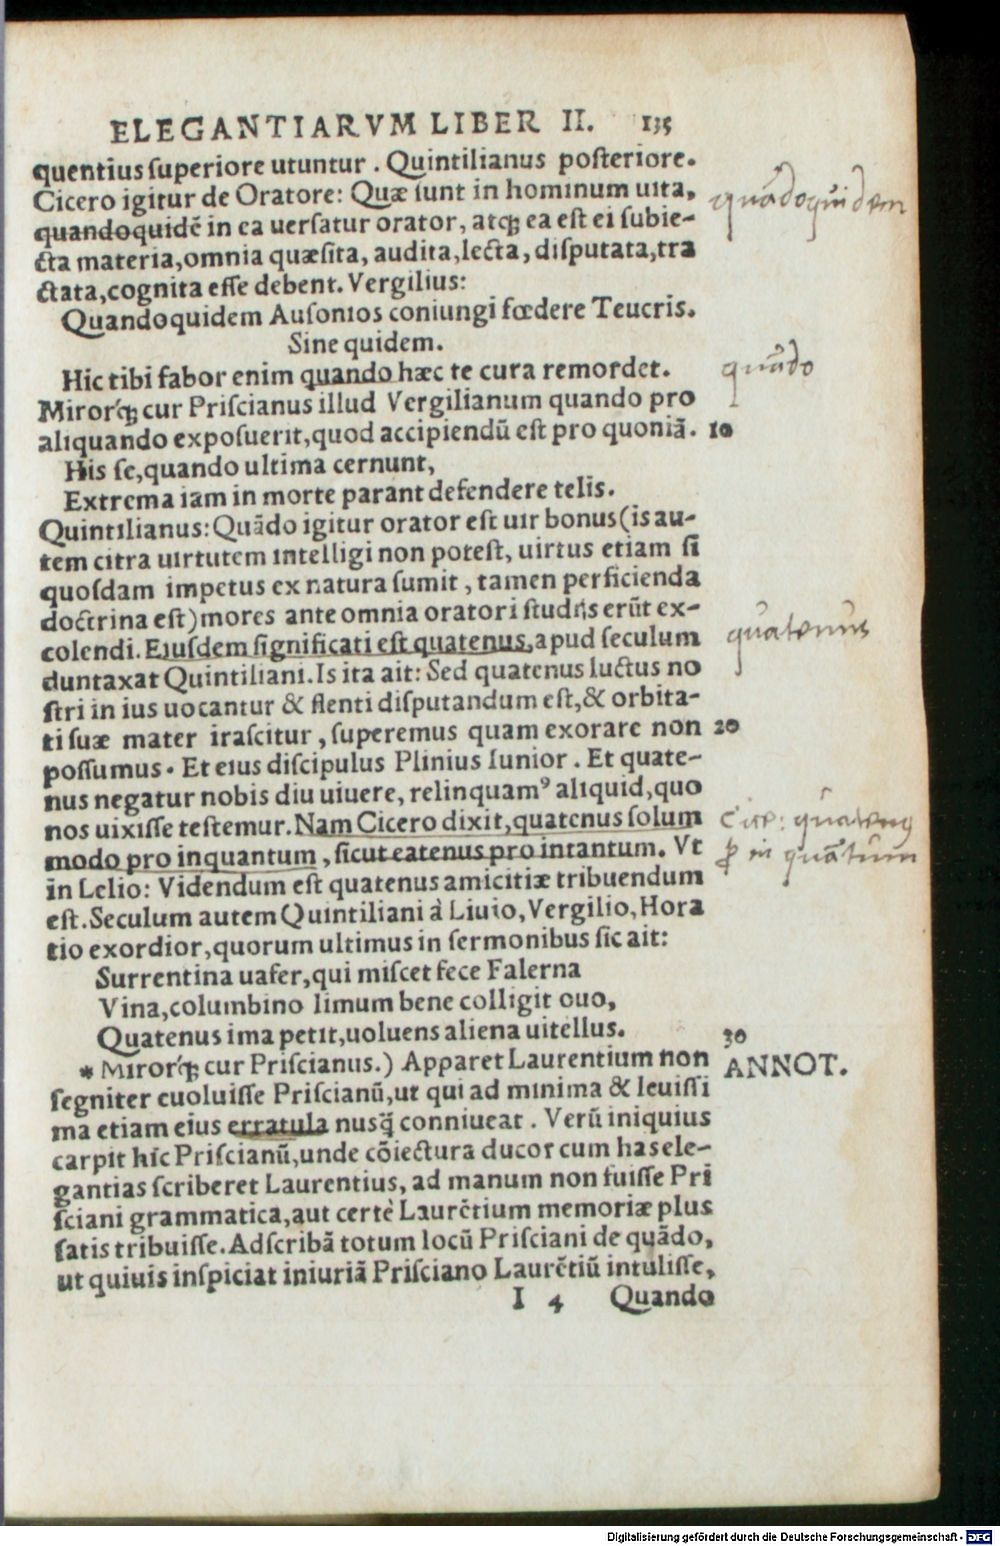 ELEGANTIARVM LIBER II. 135
quentius superiore utuntur. Quintilianus posteriore.
Cicero igitur de Oratore: Quæ sunt in hominum uita,
quandoquidẽ in ea uersatur orator, atq́ꝫ ea est ei subie-
cta materia, omnia quæsita, audita, lecta, disputata, tra
ctata, cognita esse debent. Vergilius:
Quandoquidem Ausonios coniungi fœdere Teucris.
Sine quidem.
Hic tibi fabor enim quando hæc te cura remordet.
Mirorq́ꝫ cur Priscianus illud Vergilianum quando pro
aliquando exposuerit, quod accipiendũ est pro quoniã. 10
His se, quando ultima cernunt,
Extrema iam in morte parant defendere telis.
Quintilianus: Quãdo igitur orator est uir bonus (is au-
tem citra uirtutem intelligi non potest, uirtus etiam si
quosdam impetus ex natura sumit, tamen perficienda
doctrina est) mores ante omnia oratori studijs erũt ex-
colendi. Eiusdem significati est quatenus, apud seculum
duntaxat Quintiliani. Is ita ait: Sed quatenus luctus no
stri in ius uocantur & flenti disputandum est, & orbita-
ti suæ mater irascitur, superemus quam exorare non 20
possumus. Et eius discipulus Plinius Iunior. Et quate-
nus negatur nobis diu uiuere, relinquamꝰ aliquid, quo
nos uixisse testemur. Nam Cicero dixit, quatenus solum
modo pro inquantum, sicut eatenus pro intantum. Vt
in Lelio: Videndum est quatenus amicitiæ tribuendum
est. Seculum autem Quintiliani à Liuio, Vergilio, Hora
tio exordior, quorum ultimus in sermonibus sic ait:
Surrentina uafer, qui miscet fece Falerna
Vina, columbino limum bene colligit ouo,
Quatenus ima petit, uoluens aliena uitellus.
30
* Mirorq́ꝫ cur Priscianus.) Apparet Laurentium non
ANNOT.
segniter euoluisse Priscianũ, ut qui ad minima & leuissi
ma etiam eius erratula nusq̃ conniueat. Verũ iniquius
carpit hîc Priscianũ, unde cõiectura ducor cum has ele-
gantias scriberet Laurentius, ad manum non fuisse Pri
sciani grammatica, aut certè Laurẽtium memoriæ plus
satis tribuisse. Adscribã totum locũ Prisciani de quãdo,
ut quiuis inspiciat iniuriã Prisciano Laurẽtiũ intulisse,
I 4 Quando
quãdoquidem
quãdo
quatenus
Cice: quatenus
ꝓ in quãtum
Digitalisierung gefördert durch die Deutsche Forschungsgemeinschaft - DFG